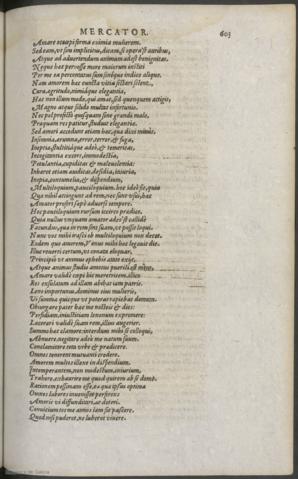 MERCATOR. 603
Amare occœpi forma eximia mulierem.
Sed eam, ut sim implicitus, dicam, si operæ est auribus,
Atque ad advertendum animum adest benignitas.
Neque hac per more maiorum
Per mea percontatus sum index ilico.
Nam amorem hæc cuncta vitia sectari solent,
Cura, ægritudo, nimiaque elegantia,
Hæc non illum modo, qui amat, sed quenquam attigit,
Magno atque solido multat infortunio.
Nec pol profecto quisquam sine grandi malo,
Præquam res patitur studuit elegantiæ.
Sed amori accedunt etiam hæc, quæ dixi minus,
Insomnia, ærumna, error, terror, & fuga,
Ineptia, stultitiaque adeò, & temeritas,
Incogitantia excors, immodestia,
Petulantia, cupiditas & malevolentia:
Inhæret etiam aviditas, desidia, iniuria,
Inopia, contumelia, & dispendium,
Multiloquium, pauciloquium. hoc ideò fit, quia
Quæ nihil attingunt ad rem, nec sunt usui, hæc
Amator profert sæpè advorso tempore.
Hoc pauciloquium rursum iccirco prædico,
Quia nullus unquam amator adeò est callidè
Facundus, quæ in rem sint suam, ut possit loqui.
Nunc vos mihi irasci ob multiloquium non decet.
Eodem quo amorem, Venus mihi hoc legavit die.
Illuc reverti certum, ut conata eloquar,
Principiò ut ex ephebis ætate exiit,
Atque animus studio amotus puerili est meus,
Amare valide cœpi hic meretricem. illico
Res exulatum ad illam abibat iam patris.
Leno importunus, dominus eius mulieris,
Vi summa quicque ut poterat rapiebat domum.
Obiurgare pater hæc me noctes & dies:
Perfidiam, iniustitiam lenonum expromere:
Lacerari validè suam rem, illius augerier.
Summo hæc clamore: interdum mussans colloqui,
Abnuere, negitare adeò me natum suum.
Conclamitare tota urbe & prædicere
Omnes tenerent mutuanti credere.
Amorem multos illexe in dispendium.
Intemperantem, non modestum, iniurium,
Trahere, exhaurire me quod quirem ab se domo.
Rationem pessimam esse, ea quæ ipsus optima
Omnes labores invenisset perferens
Amoris vi diffunditari, ac deteri.
Convicium tot me annos iam se pascere.
Quod nisi puderet, ne luberet vivere.